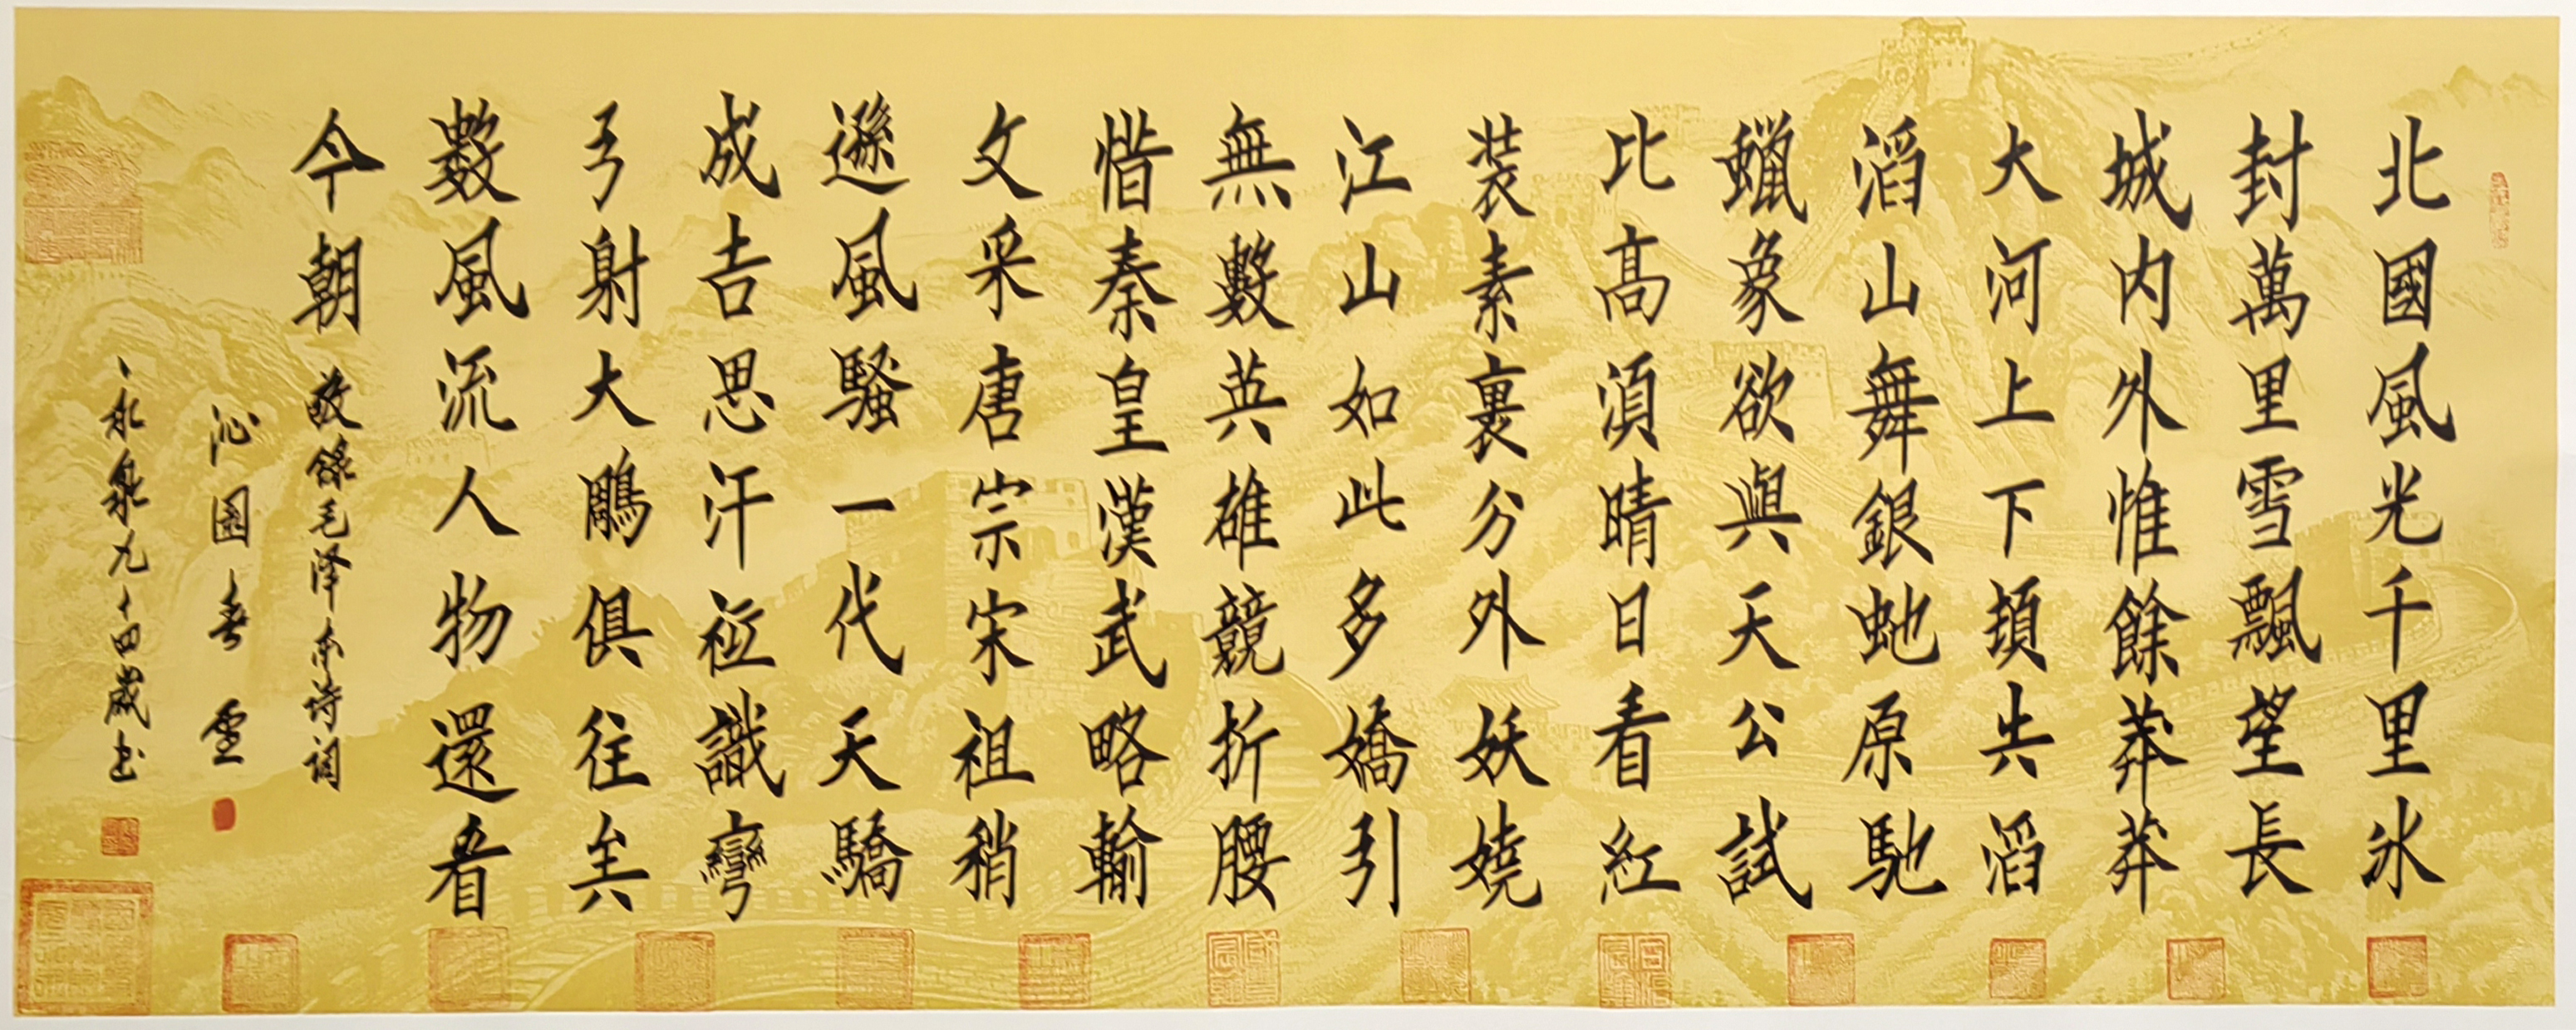 北國風光千里冰
封萬里雪飄望長
城内外惟餘莽莽
大河上下頓失滔
滔山舞銀蛇原馳
蠟象欲與天公試
比高須晴日看紅
装素裹分外妖嬈
江山如此多嬌引
無數英雄競折腰
惜秦皇漢武略輸
文采唐宗宋祖稍
遜風騷一代天驕
成吉思汗祗識彎
弓射大鵰俱往矣
數風流人物還看
今朝 敬錄毛泽东诗词
沁園春雪
永泉九十四歲书